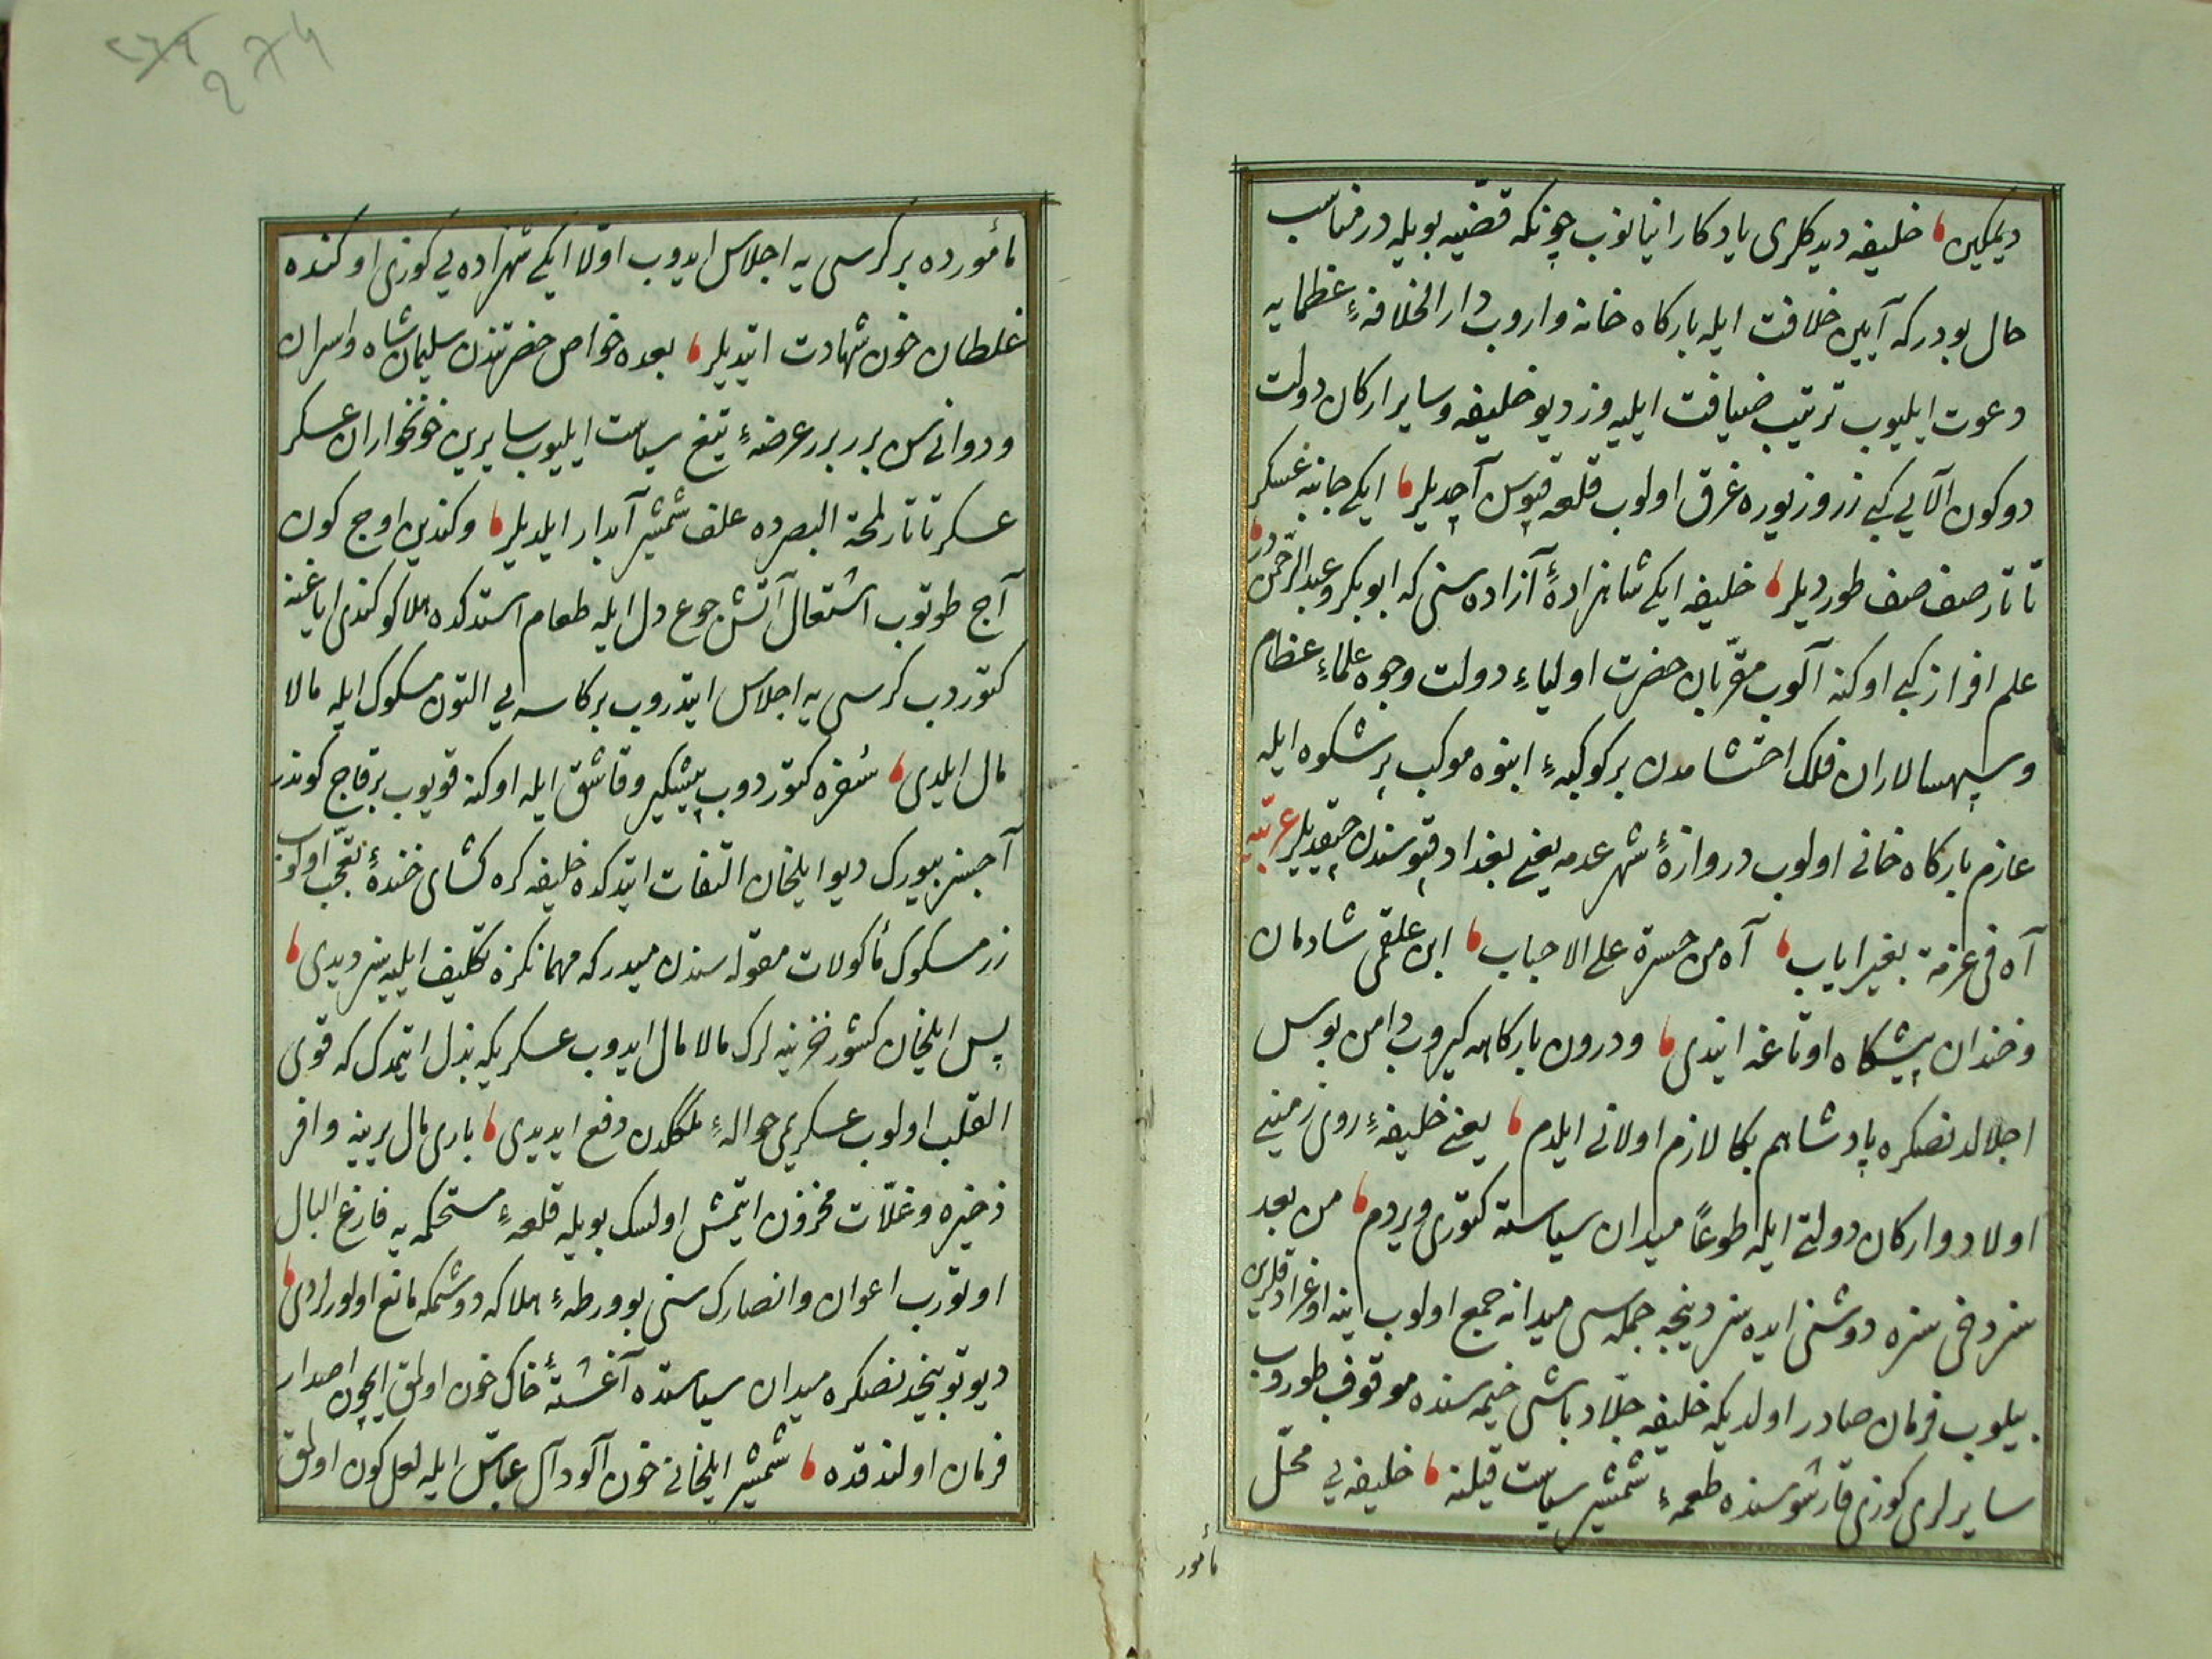 دیمکین خلیفه دیدکلری یادکار اینانوب چونکه قضیه بویله در مناسب
حال بودر که آیین خلافت ایله بارکاه خانه واروب دار الخلافهٔ عظمایه
دعوت ایلیوب ترتیب ضیافت ایلیه وز دیو خلیفه وسایر ارکان دولت
دوکون آلایی کبی زر وزیوره غرق اولوب قلعه قپوسن آچدیلر ایکی جانبه عسکر
تاتار صف صف طوردیلر خلیفه ایکی شاهزادهٔ آزاده سنی که ابوبکر وعبد الرحمن در
علم افراز کبی اوکنه آلوب مقربان حضرت اولیاء دولت وجوه علماء عظام
وسپهسالاران فلک احتشامدن بر کوکبهٔ انبوه موکب پر شکوه ایله
عازم بارکاه خانی اولوب دروازهٔ شهر عدمه یعنی بغداد قپوسندن چیقدیلر عربیه
آه فی غزمة بغیر ایاب آه من حسرة علی الاحباب ابن علقمی شادمان
وخندان پیشکاه اوتاغه ایندی ودرون بارکاهه کیروب دامن بوس
اجلالدنصکره پادشاهم بکا لازم اولانی ایلدم یعنی خلیفهٔ روی زمینی
اولاد وارکان دولتی ایله طوعاً میدان سیاسته کتوری ویردم من بعد
سز دخی سزه دوشنی ایده سز دینجه جمله سی میدانه جمع اولوب ینه اوغرادقلرین
بیلوب فرمان صادر اولدیکه خلیفه جلاد باشی خیمه سنده موقوف طوروب
سایرلری کوزی قارشوسنده طعمهٔ شمشیر سیاست قیلنه خلیفه یی محل
مأمور
مأمورده بر کرسی یه اجلاس ایدوب اولا ایکی شهزاده یی کوزی اوکنده
غلطان خون شهادت ایتدیلر بعده خواص حضرتندن سلیمان شاه واسران
ودواتی سن برر برر عرضهٔ تیغ سیاست ایلیوب سایرین خونخواران عسکر
عسکر تاتار لمحة البصرده علف شمشیر آبدار ایلدیلر وکندین اوچ کون
آج طوتوب اشتعال آتش جوع دل ایله طعام استدکده هلاکو کندی ایاغنه
کتوردب کرسی یه اجلاس ایتدروب بر کاسه یی التون مسکوک ایله مالا
مال ایلدی سفره کتوردوب پیشکیر وقاشق ایله اوکنه قویوب بر قاج کوندر
آجسز بیورک دیو ایلخان التفات ایتدکده خلیفه کره کشای خندهٔ تعجب اولوب
زر مسکوک مأکولات مقوله سندن میدر که مهمانکزه تکلیف ایلیه سز دیدی
پس ایلخان کشور خزینه لرک مالامال ایدوب عسکریکه بذل ایتمدک که قوی
القلب اولوب عسکریمی حوالهٔ ملکدن دفع ایدیدی باری مال یرینه وافر
ذخیره وغلات مخزون ایتمش اولسک بویله قلعهٔ مستحکمه یه فارغ البال
اوتورب اعوان وانصارک سنی بو ورطهٔ هلاکه دوشمکه مانع اولورلردی
دیو توبیخدنصکره میدان سیاستده آغشتهٔ خاک خون اولمق ایچون اصدار
فرمان اولندقده شمشیر ایلخانی خون آلود آل عباس ایله لعل کون اولمق